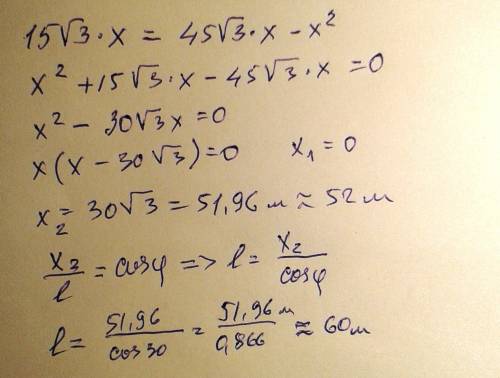 15√3·x = 45√3·x - x²
x² + 15√3·x - 45√3·x = 0
x² - 30√3x = 0
x(x - 30√3) = 0 x₁ = 0
x₂ = 30√3 = 51,96 м ≈ 52 м
x₂/l = cosφ => l = x₂/cosφ
l = 51,96/cos30 = 51,96 м/0,866 ≈ 60 м